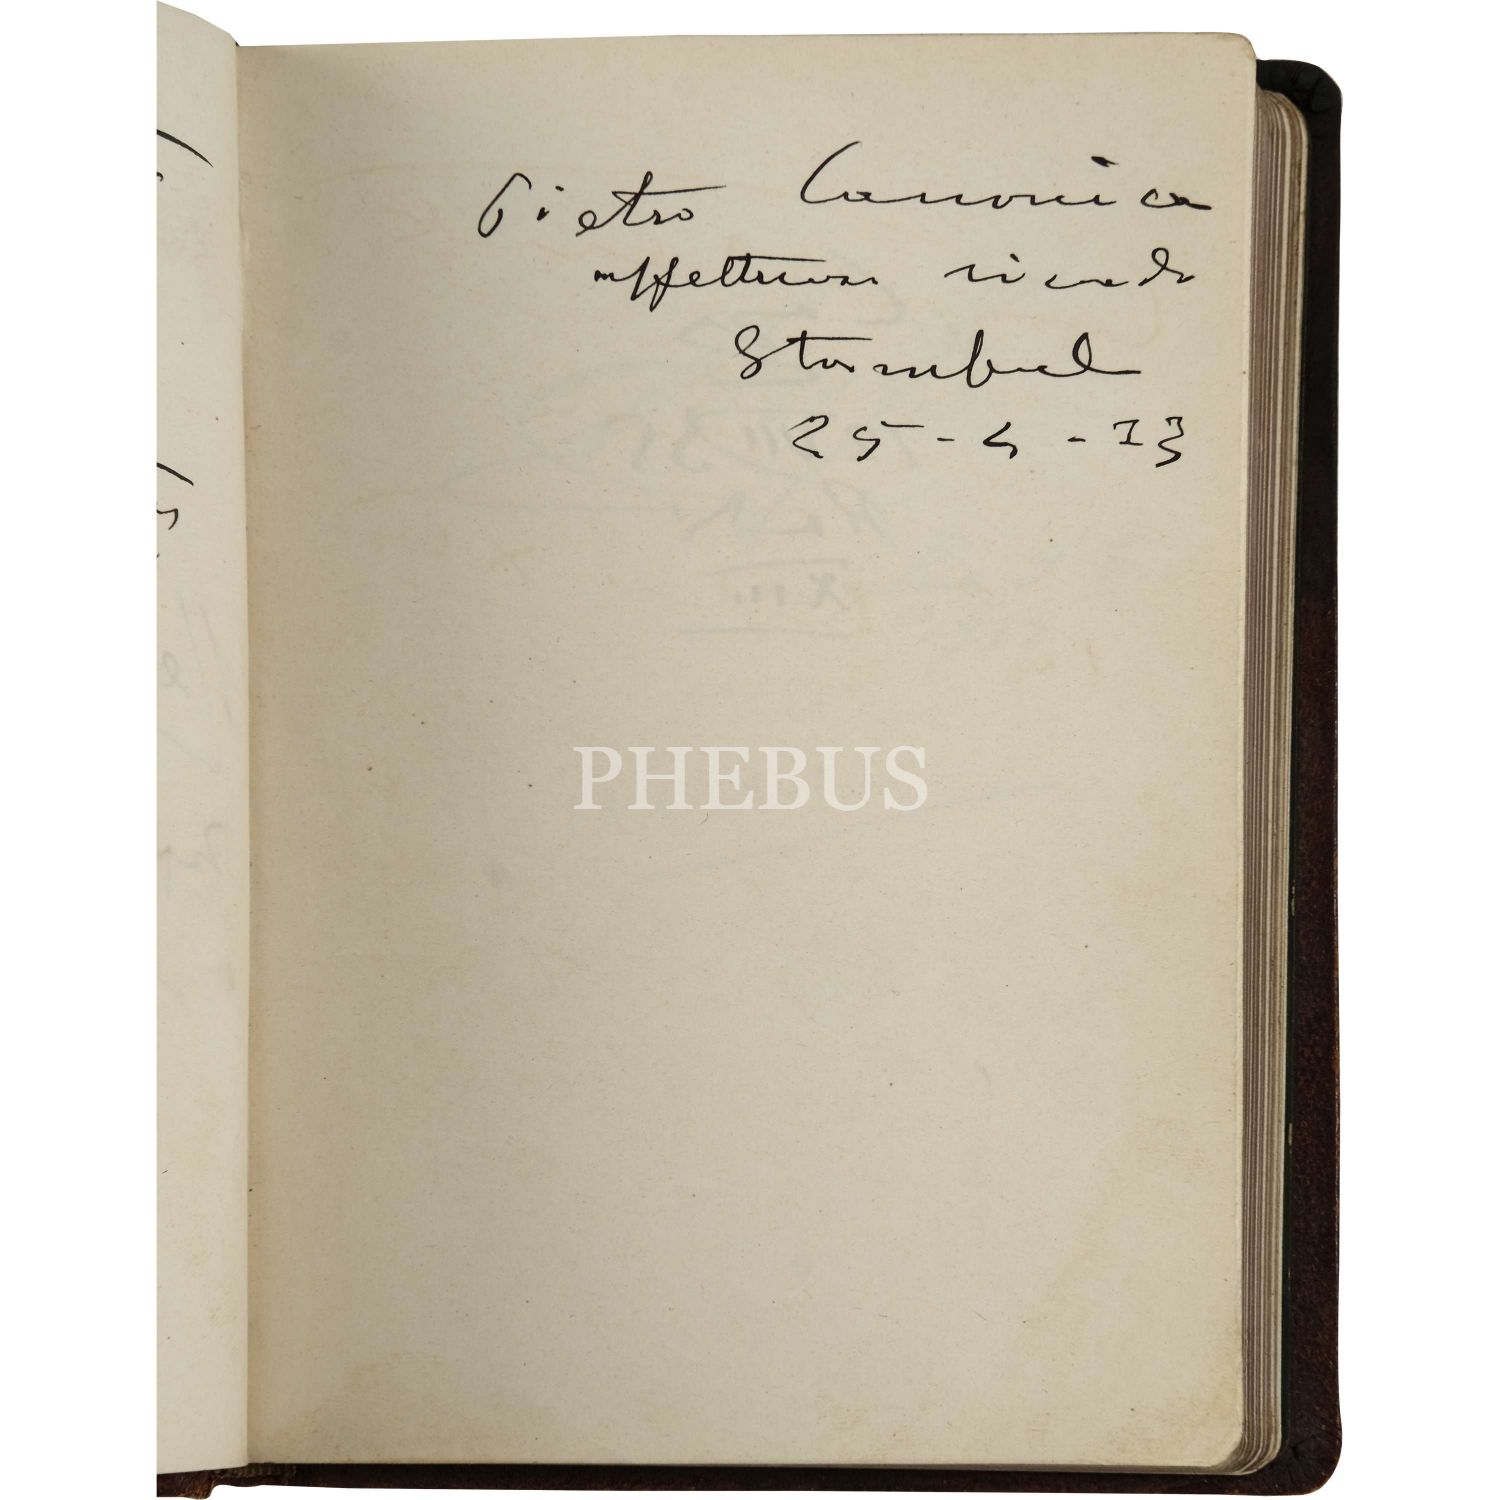 Pietro Canonica
affettuoso ricordo
Stambul
25-4-33
PHEBUS